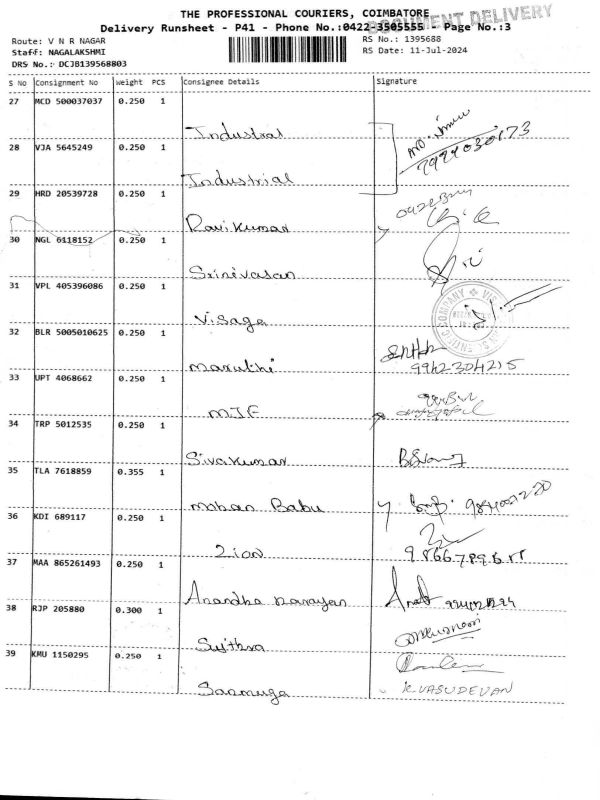 THE PROFESSIONAL COURIERS, COIMBATORE
DOCUMENT DELIVERY
Delivery Runsheet - P41 - Phone No.:0422-3505555 - Page No.:3
Route: V N R NAGAR
RS No.: 1395688
Staff: NAGALAKSHMI
RS Date: 11-Jul-2024
DRS No.: DCJB139568803
S No Consignment No Weight PCS Consignee Details Signature
27 MCD 500037037 0.250 1
Industrial
28 VJA 5645249 0.250 1
7994030173
Industrial
29 HRD 20539728 0.250 1
Ravikumar
30 NGL 6118152 0.250 1
Srinivasan
31 VPL 405396086 0.250 1
Visaga
32 BLR 5005010625 0.250 1
Maruthi
9942304215
33 UPT 4068662 0.250 1
MJF
34 TRP 5012535 0.250 1
Sivakumar
35 TLA 7618859 0.355 1
Mohan Babu
36 KDI 689117 0.250 1
Zion
37 MAA 865261493 0.250 1
Anandha Narayan
38 RJP 205880 0.300 1
Sujthra
39 KMU 1150295 0.250 1
Sanmuga K.VASUDEVAN